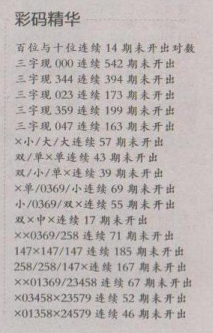 彩码精华
百位与十位连续 14 期未开出对数
三字现 000 连续 542 期未开出
三字现 344 连续 394 期未开出
三字现 023 连续 173 期未开出
三字现 359 连续 199 期未开出
三字现 047 连续 163 期未开出
×小/大/大连续 57 期未开出
双/单×单连续 43 期未开出
双/小/单×连续 39 期未开出
×单/0369/小连续 69 期未开出
小/0369/双×连续 55 期未开出
双×中×连续 17 期未开出
××0369/258 连续 71 期未开出
147×147/147 连续 185 期未开出
258/258/147×连续 167 期未开出
××01369/23458 连续 67 期未开出
×03458×23579 连续 52 期未开出
×01358×24579 连续 46 期未开出